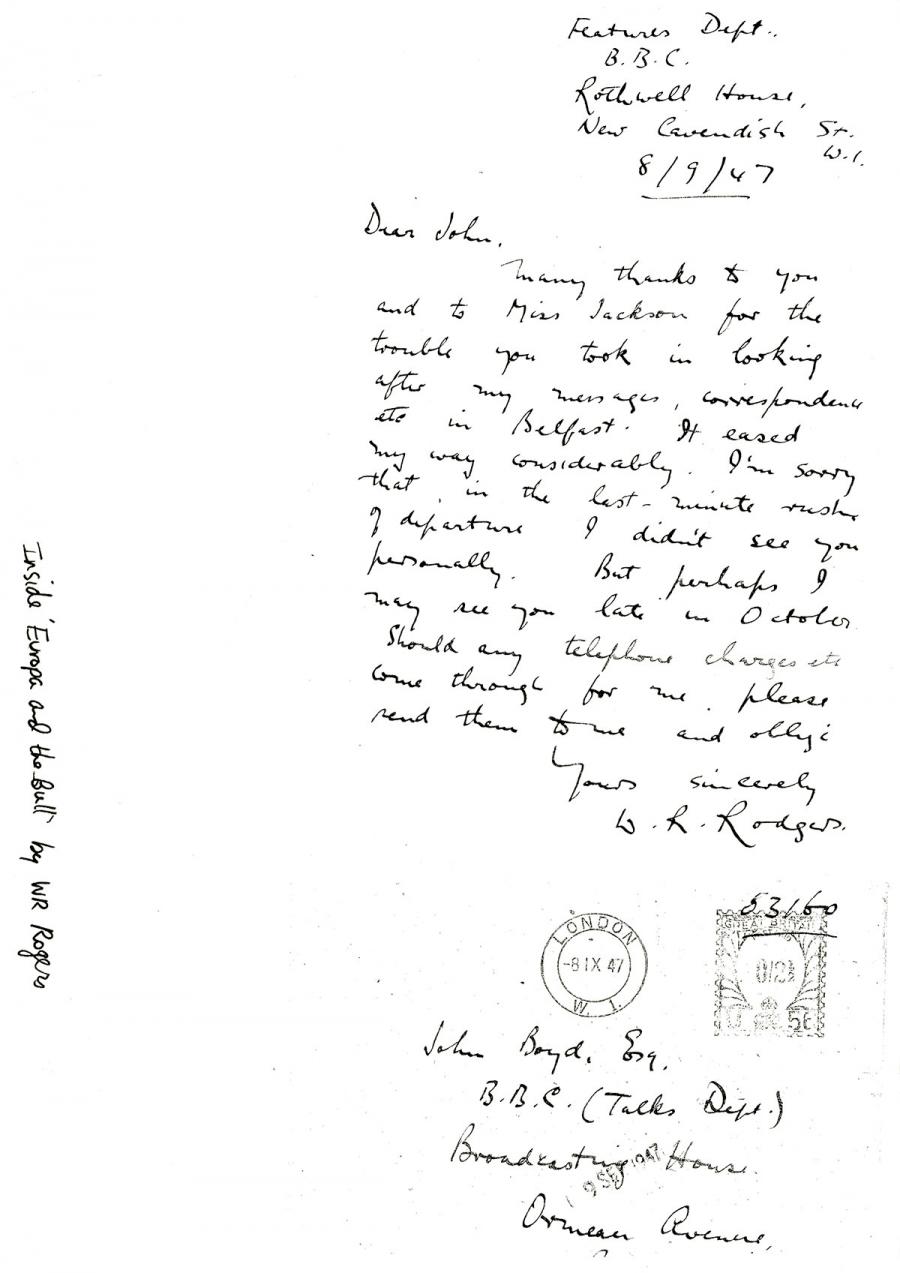 Features Dept..
B.B.C.
Rothwell House,
New Cavendish St.
W.1.
8/9/47
Dear John,
Many thanks to you
and to Miss Jackson for the
trouble you took in looking
after my messages, correspondence
etc in Belfast. It eased
my way considerably. I'm sorry
that, in the last-minute rush
of departure I didn't see you
personally. But perhaps I
may see you late in October.
Should any telephone charges etc
come through for me, please
send them to me and oblige
Yours sincerely
W. R. Rodgers.
Inside 'Europa and the Bull' by WR Rogers
53160
LONDON
-8 IX 47
W. 1.
GREAT BRITAIN
John Boyd, Esq.
B.B.C. (Talks Dept.)
Broadcasting House.
9 SEP 1947
Ormeau Avenue,